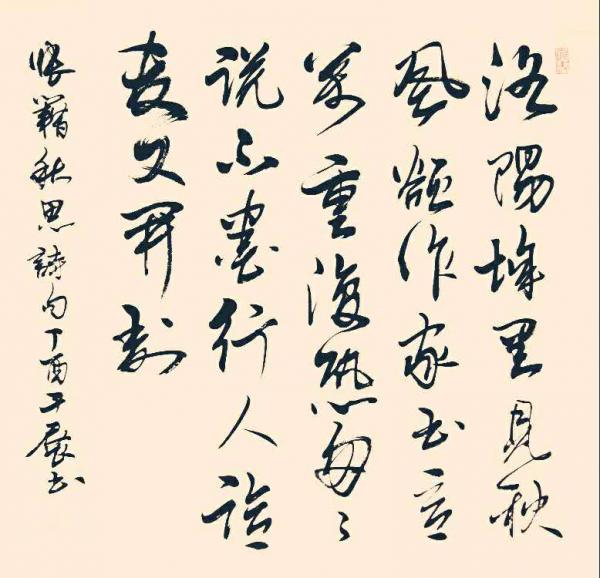 洛陽城里見秋
風欲作家书意
萬重復恐匆々
説不盡行人臨
發又開封
張籍秋思詩句丁酉子展书